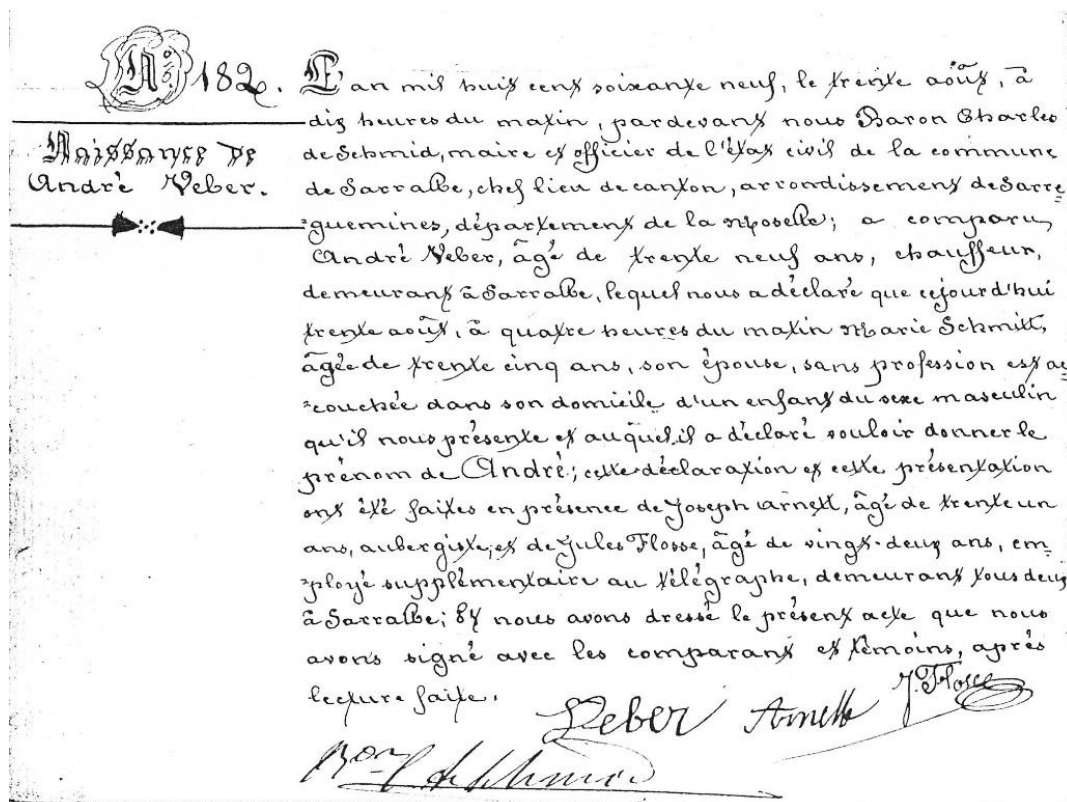 N.º 182.
Naissance de
André Veber.
L'an mil huit cent soixante neuf, le trente août, à
dix heures du matin, pardevant nous Baron Charles
de Schmid, maire et officier de l'état civil de la commune
de Sarralbe, chef lieu de canton, arrondissement de Sarre=
=guemines, département de la Moselle; a comparu
André Veber, âgé de trente neuf ans, chauffeur,
demeurant à Sarralbe, lequel nous a déclaré que cejourd'hui
trente août, à quatre heures du matin Marie Schmitt,
âgée de trente cinq ans, son épouse, sans profession est ac=
=couchée dans son domicile d'un enfant du sexe masculin
qu'il nous présente et auquel il a déclaré vouloir donner le
prénom de André; cette déclaration et cette présentation
ont été faites en présence de Joseph Arnett, âgé de trente un
ans, aubergiste, et de Jules Flosse, âgé de vingt-deux ans, em=
=ployé supplémentaire au télégraphe, demeurant tous deux
à Sarralbe; Et nous avons dressé le présent acte que nous
avons signé avec les comparant et témoins, après
lecture faite.
Veber Arnett J. Flosse
Bon C de Schmid